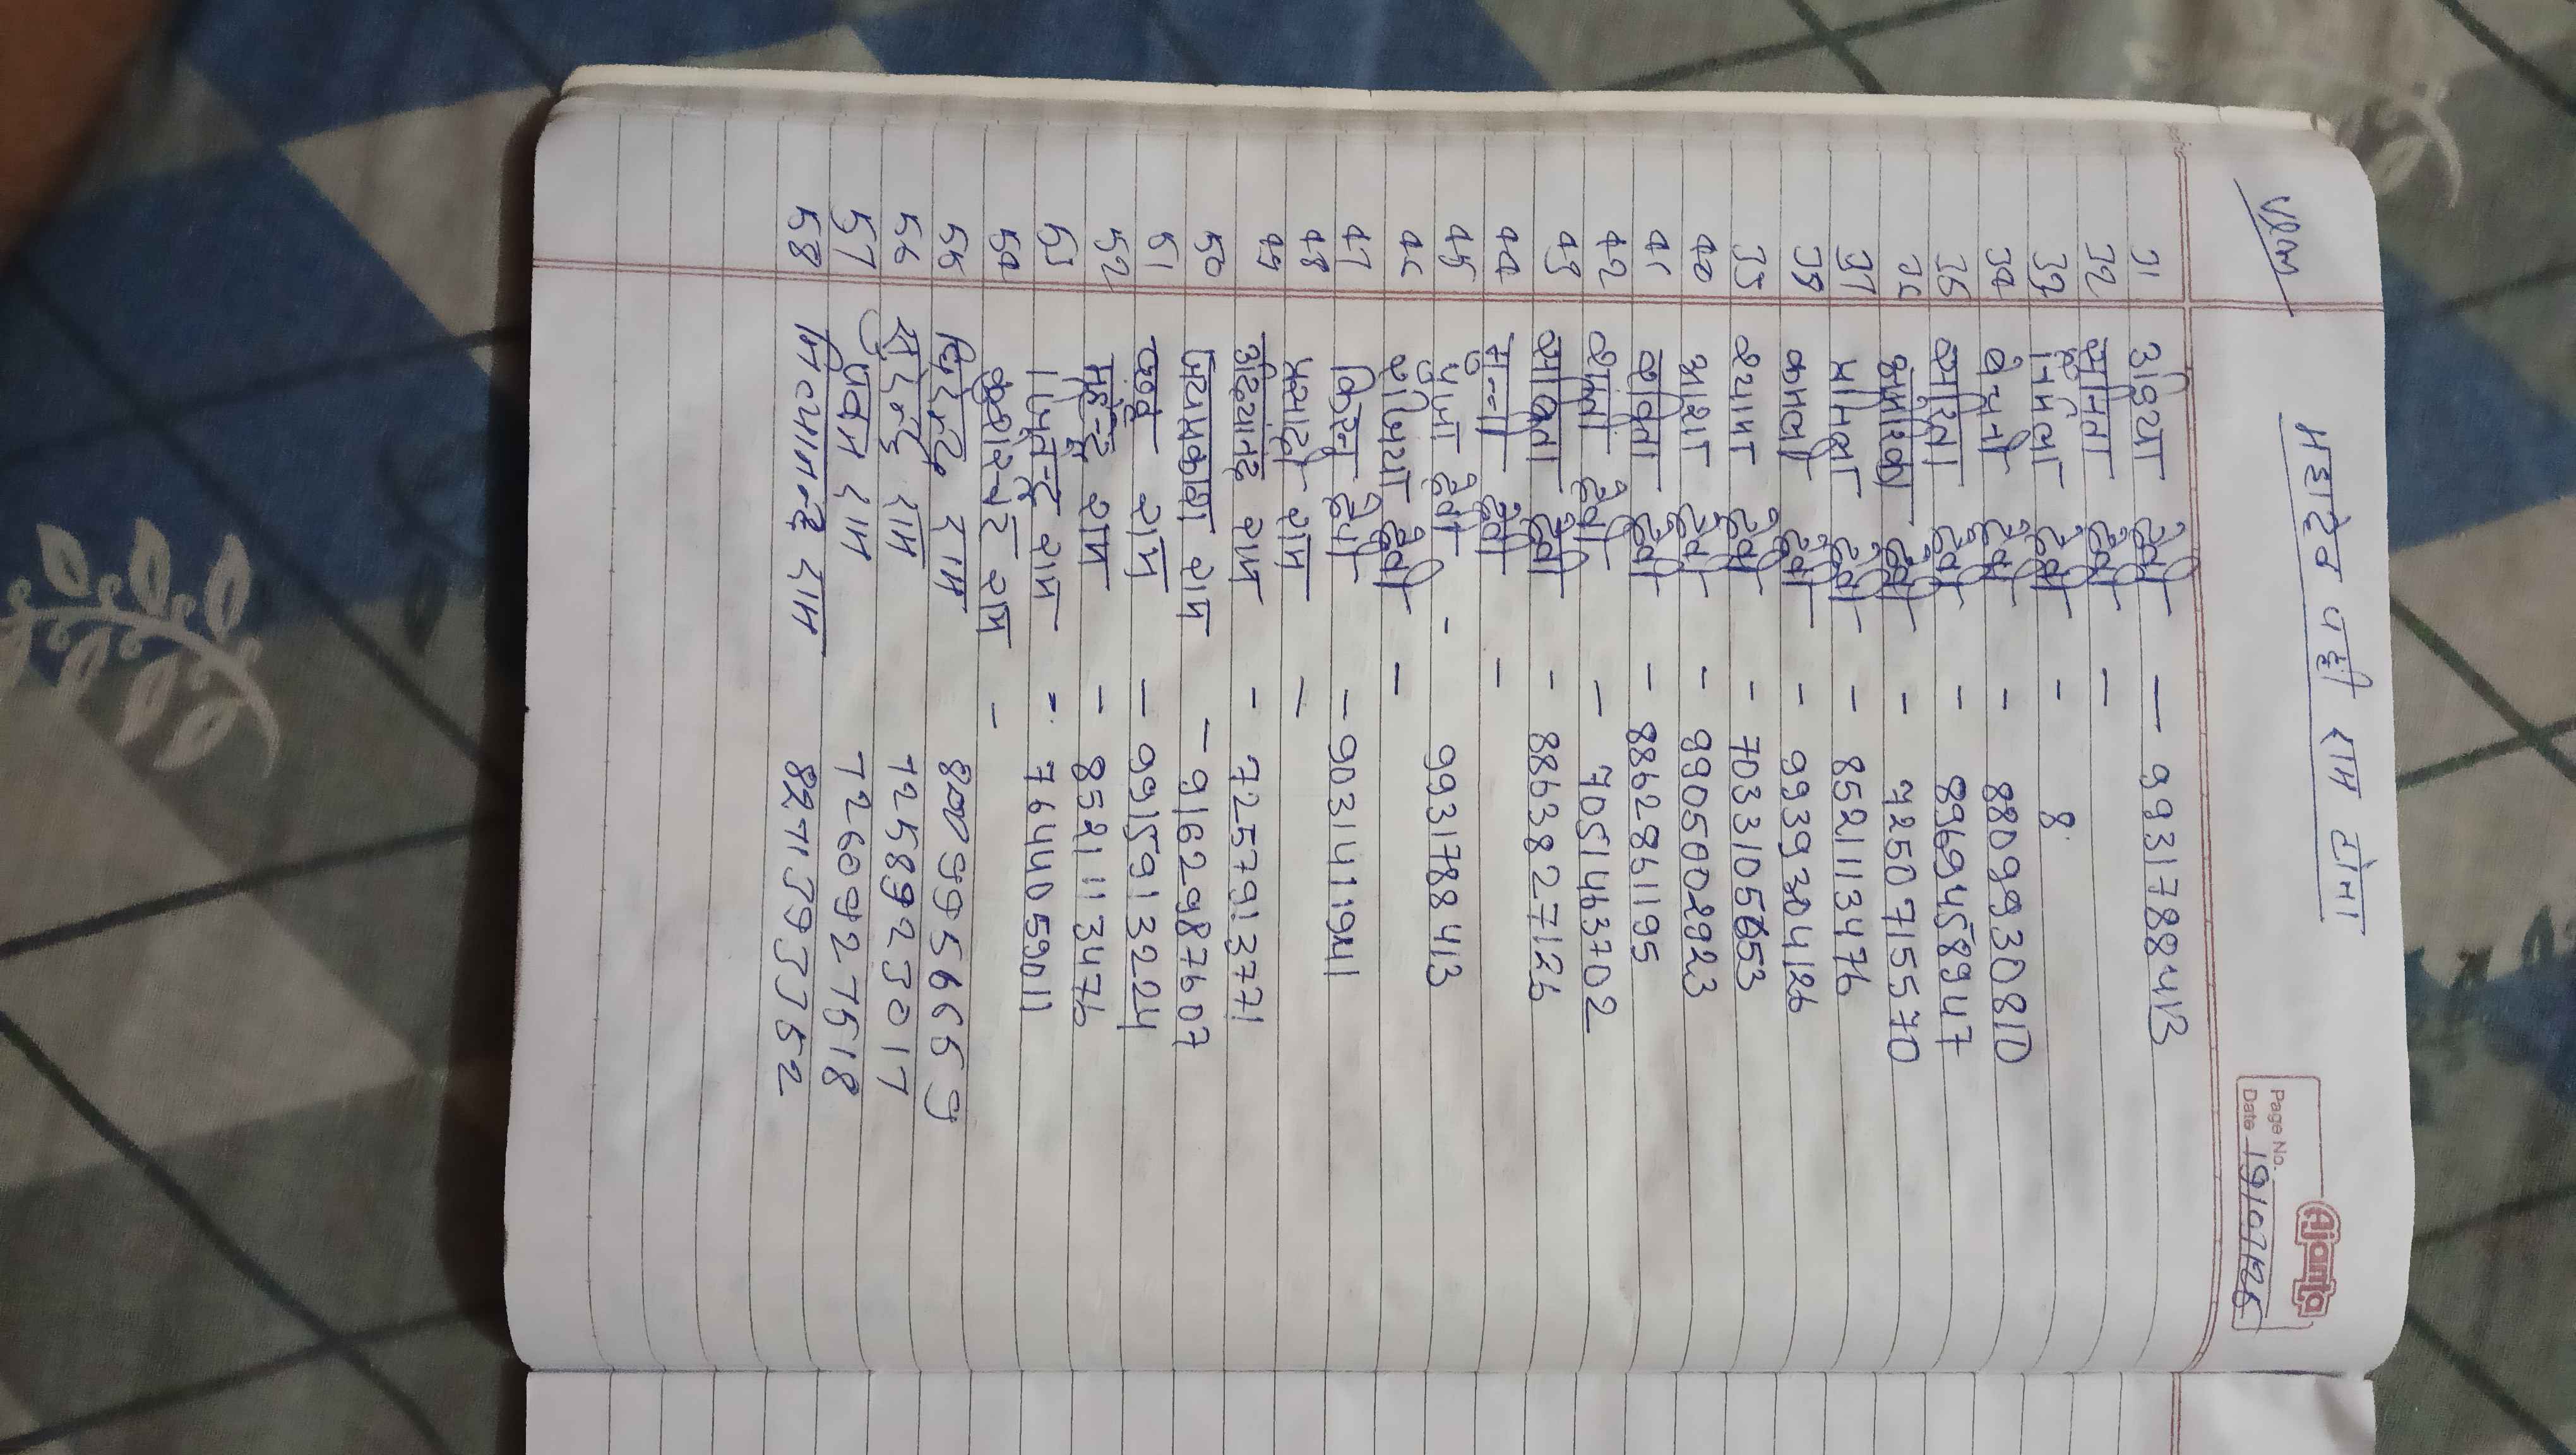 Ajanta
Page No.
Date 19/07/25
महादेव पही राम टोला
31 देवी — 9931788413
32 सुनिता देवी —
33 निर्मला देवी - 8
34 देवी - 8809930810
35 देवी - 8969458947
36 देवी - 9250715570
37 देवी - 8521113476
38 कमली देवी - 9939304126
39 श्यामा देवी - 7033105653
40 आशा देवी - 9905002923
41 सविता देवी - 8862861195
42 देवी - 7051463702
43 सावित्री देवी - 8863827126
44 मुन्नी देवी -
45 देवी - 9931788413
46 देवी -
47 किरन देवी - 9031411941
48 राम -
49 राम - 7257913771
50 जयप्रकाश राम - 9162987607
51 राम - 9915913224
52 महेन्द्र राम - 8521113476
53 राम - 7644059011
54 राम -
55 राम
56 सुरेन्द्र राम 7258923017
57 पवन राम 7260927518
58 नित्यानन्द राम